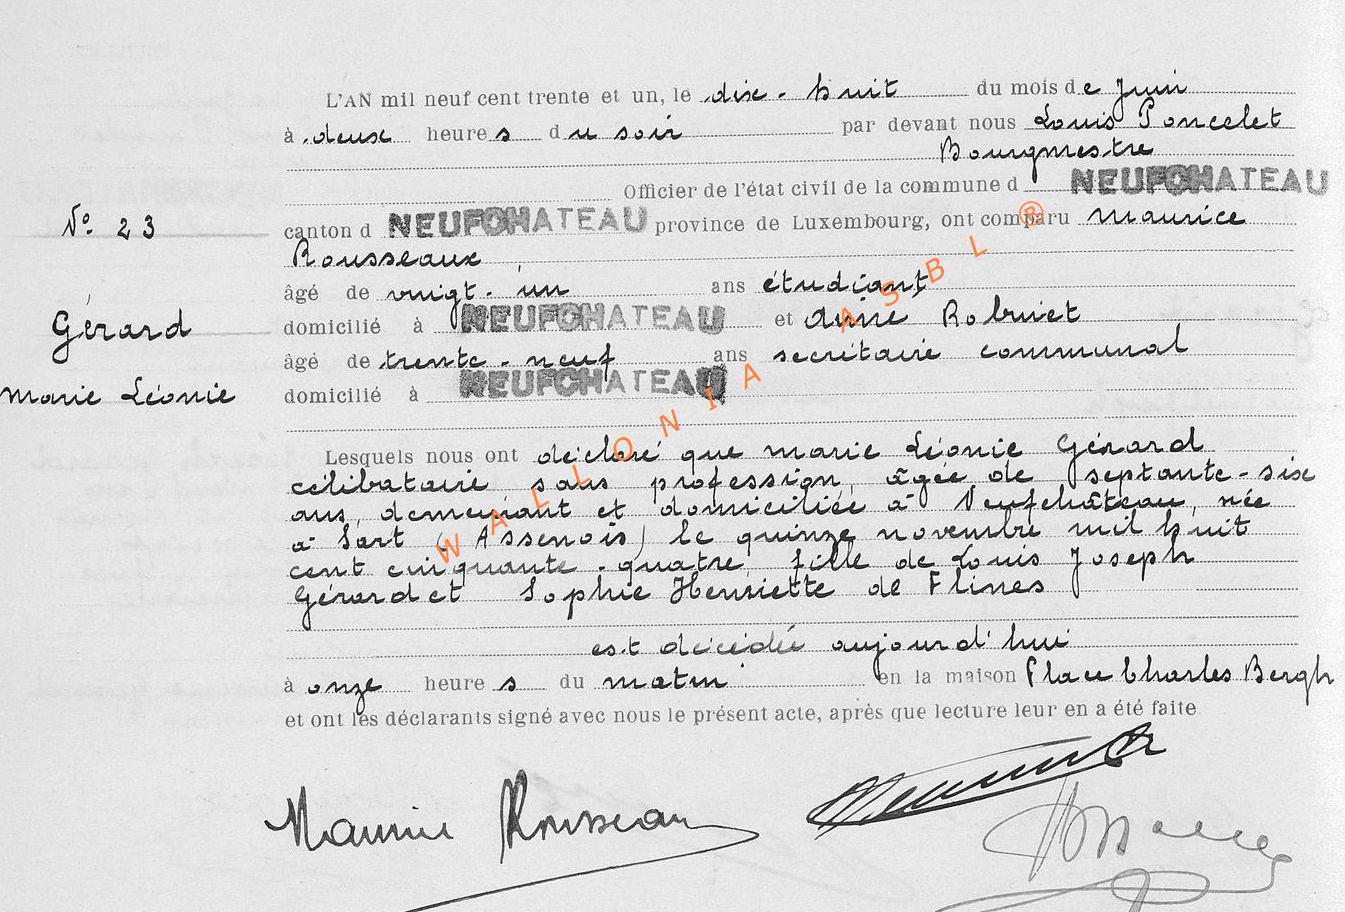 L'AN mil neuf cent trente et un, le dix-huit du mois de Juin
à deux heures du soir par devant nous Louis Poncelet
Bourgmestre
Officier de l'état civil de la commune d NEUFCHATEAU
N° 23
canton d NEUFCHATEAU province de Luxembourg, ont comparu Maurice
Rousseaux
âgé de vingt-un ans étudiant
Gérard
domicilié à NEUFCHATEAU et Aimé Robinet
âgé de trente-neuf ans secrétaire communal
Marie Léonie
domicilié à NEUFCHATEAU
Lesquels nous ont déclaré que Marie Léonie Gérard
célibataire, sans profession, âgée de septante-six
ans, demeurant et domiciliée à Neufchâteau, née
à Sart (Assenois) le quinze novembre mil huit
cent cinquante-quatre, fille de Louis Joseph
Gérard et Sophie Henriette de Flines
est décédée aujourd'hui
à onze heures du matin en la maison Place Charles Bergh
et ont les déclarants signé avec nous le présent acte, après que lecture leur en a été faite
Maurice Rousseaux
WALLONIA ASBL ®